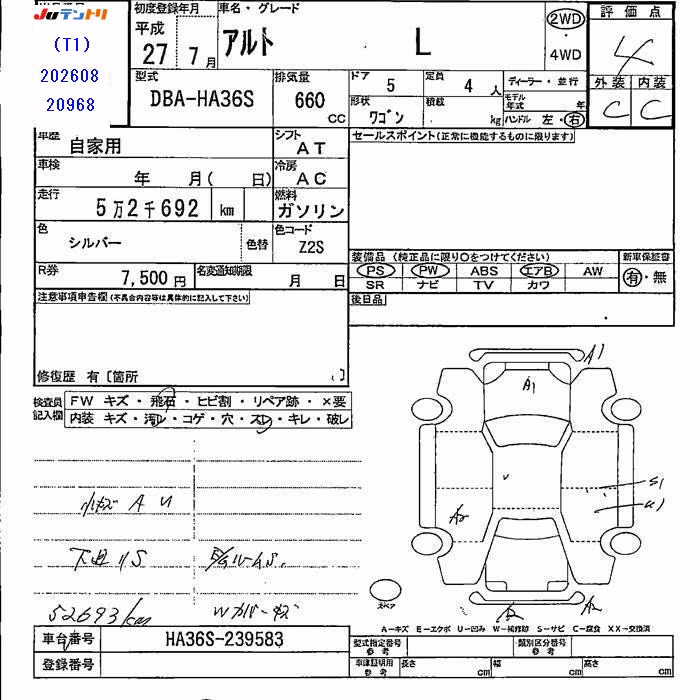 JUテントリ
(T1)
202608
20968
初度登録年月
平成
27 7月
車名・グレード
アルト L
2WD
・
4WD
評価点
4
外装 内装
C C
型式
DBA-HA36S
排気量
660
CC
ドア 5
定員 4 人
ディーラー・並行
形状 ワゴン
積載 kg
モデル年式 年
ハンドル 左・右
車歴 自家用
シフト AT
セールスポイント(正常に機能するものに限ります)
車検 年 月( 日)
冷房 AC
走行 5万2千692 km
燃料 ガソリン
色 シルバー
色替
色コード Z2S
装備品(純正品に限り○をつけてください)
新車保証書
PS PW ABS エアB AW
SR ナビ TV カワ
有・無
R券 7,500円
名変通知期限 月 日
後日品
注意事項申告欄(不具合内容等は具体的に記入して下さい)
修復歴 有〔箇所 〕
検査員記入欄
FW キズ・飛石・ヒビ割・リペア跡・×要
内装 キズ・汚レ・コゲ・穴・スレ・キレ・破レ
A1
A1
S1
U1
A2
A2
小キズ A U
下廻り S
52693km
Wカバーキズ
スペア
A−キズ E−エクボ U−凹み W−補修跡 S−サビ C−腐食 XX−交換済
車台番号 HA36S-239583
登録番号
型式指定番号
参考
類別区分番号
参考
車庫証明用
参考
長さ cm
幅 cm
高さ cm